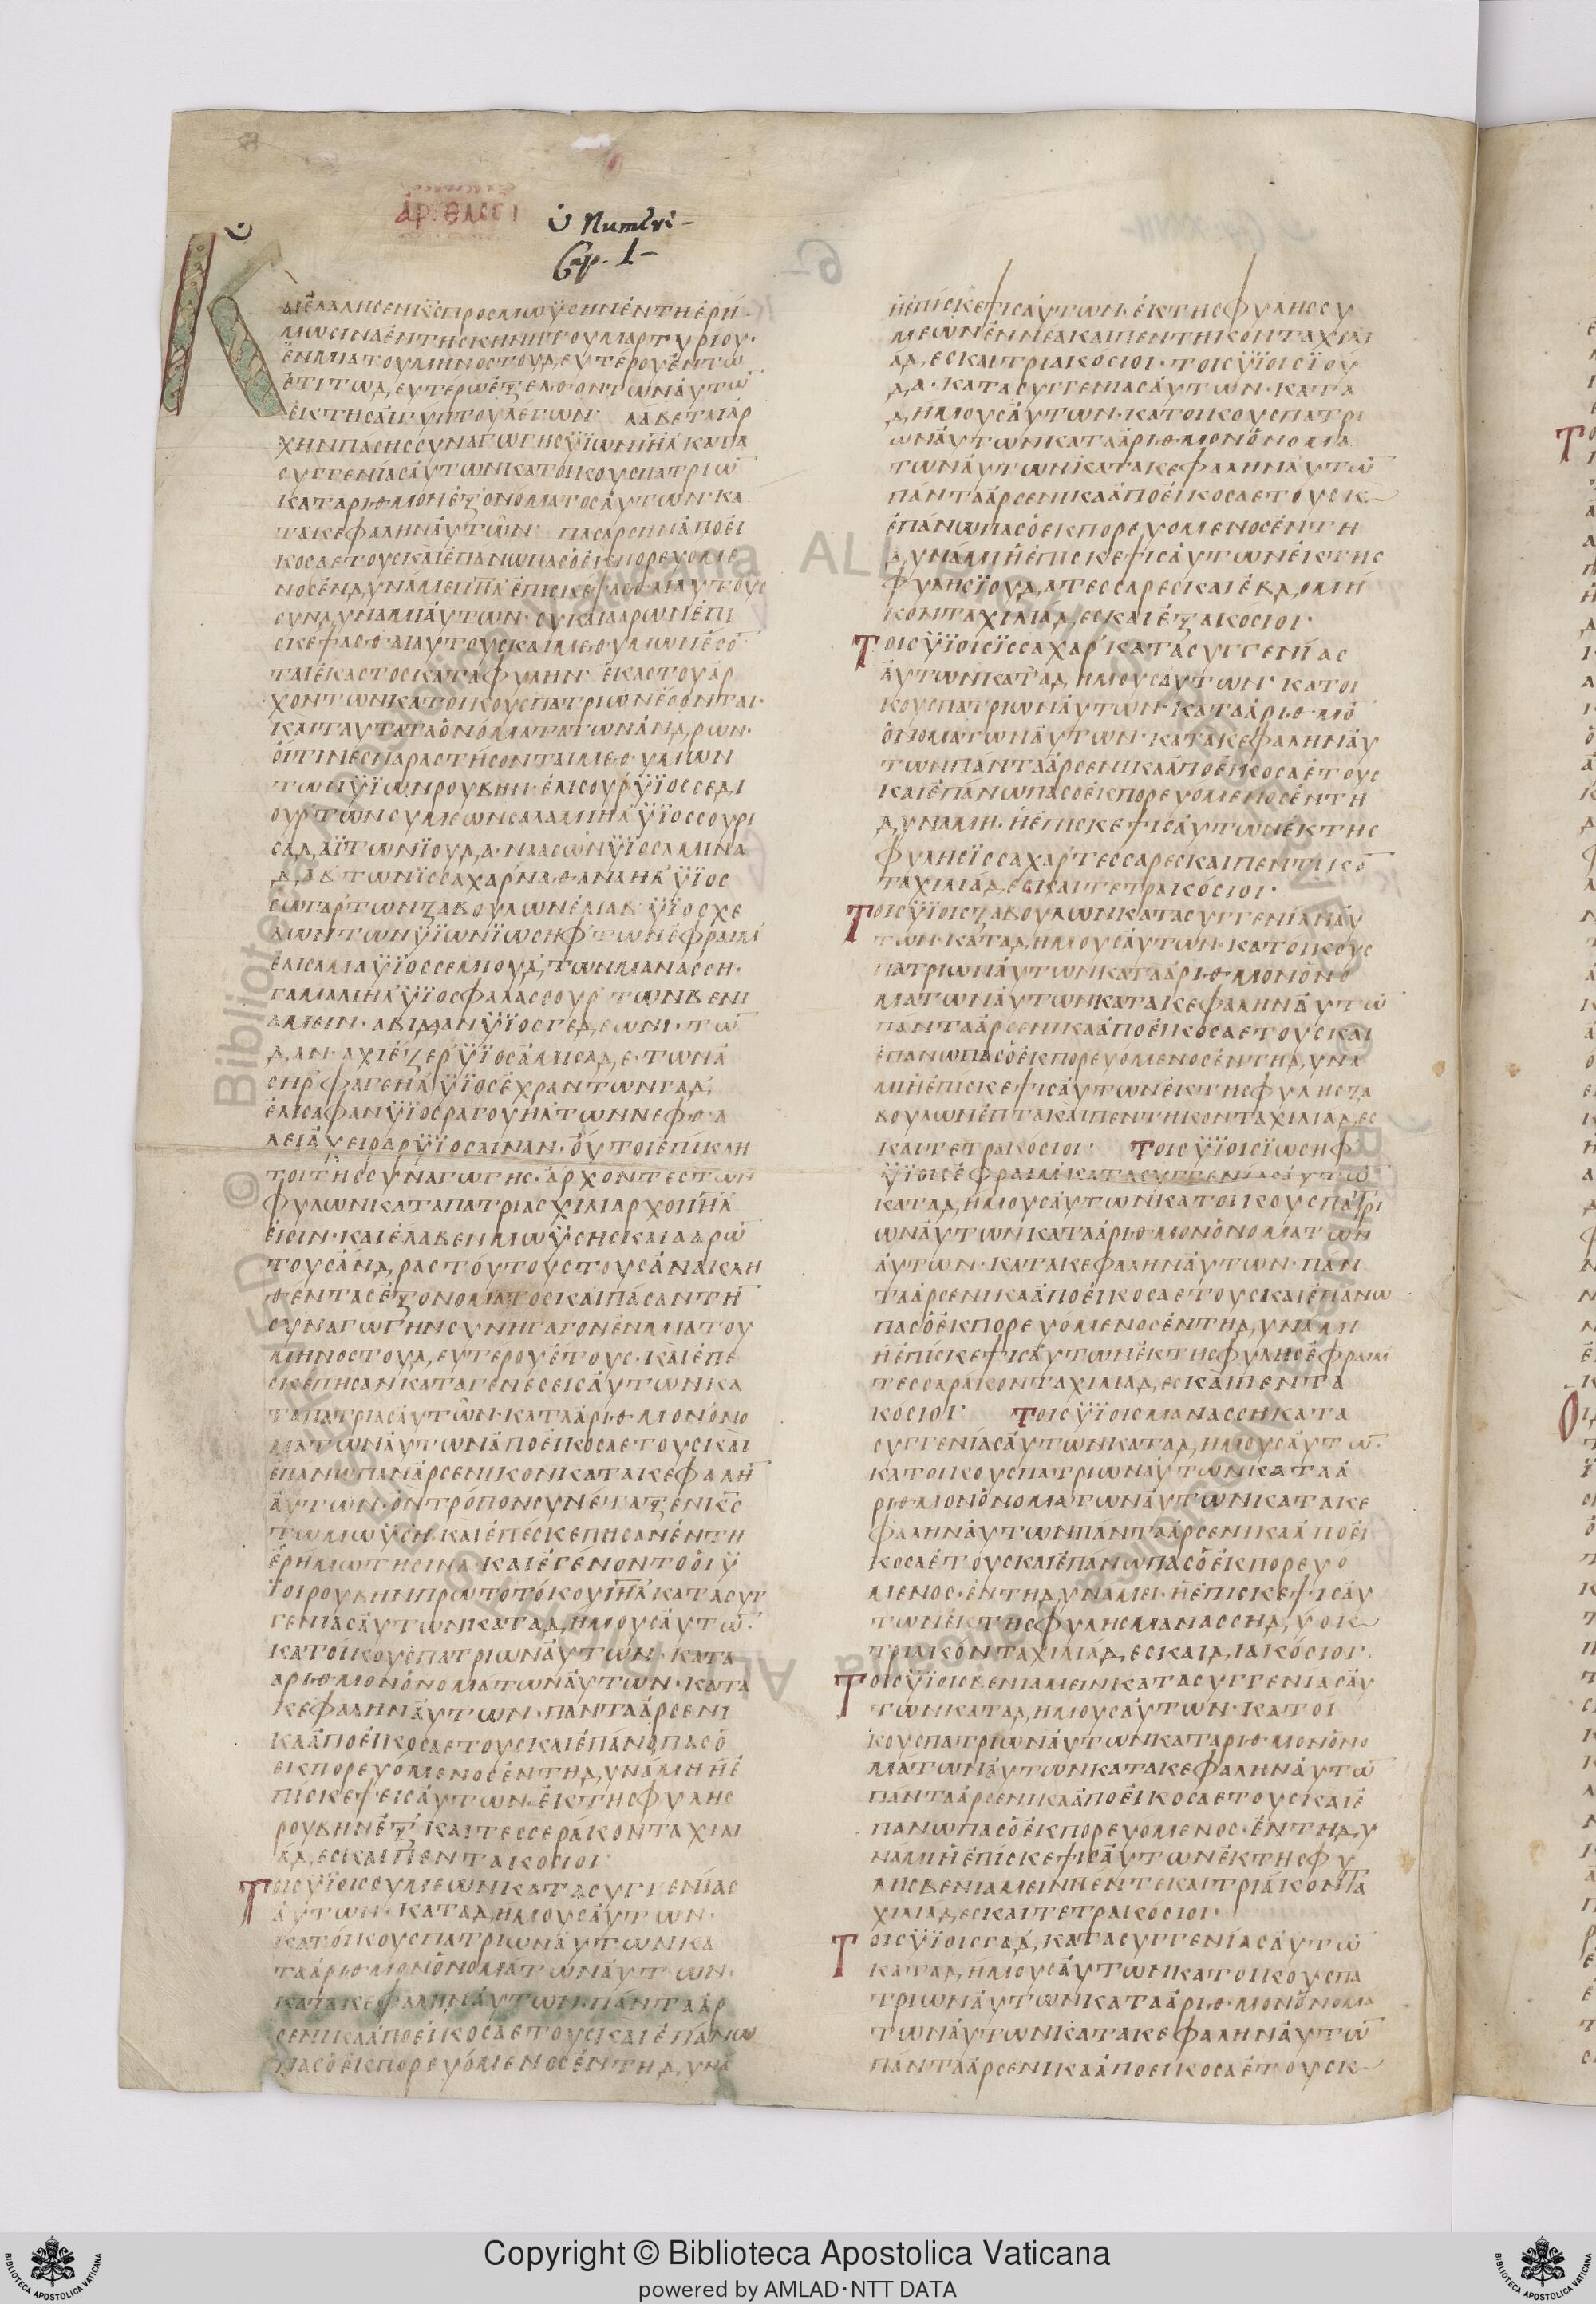 ἀριθμοὶ
Numeri
Cap. 1
ΚΑΙΕΛΑΛΗΣΕΝΚΣΠΡΟΣΜΩΥΣΗΝΕΝΤΗΕΡΗ
ΜΩΣΙΝΑΕΝΤΗΣΚΗΝΗΤΟΥΜΑΡΤΥΡΙΟΥ·
ΕΝΜΙΑΤΟΥΜΗΝΟΣΤΟΥΔΕΥΤΕΡΟΥΕΝΤΩ
ΕΤΙΤΩΔΕΥΤΕΡΩΕΞΕΛΘΟΝΤΩΝΑΥΤΩ̅
ΕΚΤΗΣΑΙΓΥΠΤΟΥΛΕΓΩΝ ΛΑΒΕΤΑΙΑΡ
ΧΗΝΠΑΣΗΣΣΥΝΑΓΩΓΗΣΫΙΩΝΙΗΛΚΑΤΑ
ΣΥΓΓΕΝΙΑΣΑΥΤΩΝΚΑΤΟΙΚΟΥΣΠΑΤΡΙΩ̅
ΚΑΤΑΡΙΘΜΟΝΕΞΟΝΟΜΑΤΟΣΑΥΤΩΝ·ΚΑ
ΤΑΚΕΦΑΛΗΝΑΥΤΩΝ ΠΑΣΑΡΣΗΝΑΠΟΕΙ
ΚΟΣΑΕΤΟΥΣΚΑΙΕΠΑΝΩΠΑΣΟΕΚΠΟΡΕΥΟΜΕ
ΝΟΣΕΝΔΥΝΑΜΕΙΙΗΛΕΠΙΣΚΕΨΑΣΘΑΙΑΥΤΟΥΣ
ΣΥΝΔΥΝΑΜΙΑΥΤΩΝ·ΣΥΚΑΙΑΑΡΩΝΕΠΙ
ΣΚΕΨΑΣΘΑΙΑΥΤΟΥΣΚΑΙΜΕΘΥΜΩΝΕΣΟ̅
ΤΑΙΕΚΑΣΤΟΣΚΑΤΑΦΥΛΗΝ ΕΚΑΣΤΟΥΑΡ
ΧΟΝΤΩΝΚΑΤΟΙΚΟΥΣΠΑΤΡΙΩΝΕΣΟΝΤΑΙ·
ΚΑΙΤΑΥΤΑΤΑΟΝΟΜΑΤΑΤΩΝΑΝΔΡΩΝ·
ΟΙΤΙΝΕΣΠΑΡΑΣΤΗΣΟΝΤΑΙΜΕΘΥΜΩΝ
ΤΩΝΫΪΩΝΡΟΥΒΗΝ·ΕΛΙΣΟΥΡΫΪΟΣΣΕΔΙ
ΟΥΡΤΩΝΣΥΜΕΩΝΣΑΛΑΜΙΗΛΫΪΟΣΣΟΥΡΙ
ΣΑΔΑΪΤΩΝΪΟΥΔΑ·ΝΑΑΣΩΝΫΪΟΣΑΜΙΝΑ
ΔΑΒΤΩΝΪΣΣΑΧΑΡΝΑΘΑΝΑΗΛΫΪΟΣ
ΣΩΓΑΡΤΩΝΖΑΒΟΥΛΩΝΕΛΙΑΒΫΪΟΣΧΕ
ΛΩΝΤΩΝΫΪΩΝΪΩΣΗΦΤΩΝΕΦΡΑΙΜ
ΕΛΙΣΑΜΑΫΪΟΣΣΕΜΙΟΥΔΤΩΝΜΑΝΑΣΣΗ·
ΓΑΜΑΛΙΗΛΫΪΟΣΦΑΛΑΣΣΟΥΡ ΤΩΝΒΕΝΙ
ΑΜΕΙΝ·ΑΒΙΔΑΝΫΪΟΣΓΕΔΕΩΝΙ·ΤΩ̅
ΔΑΝ·ΑΧΙΕΖΕΡΫΪΟΣΑΜΙΣΑΔΕ·ΤΩΝΑ
ΣΗΡΦΑΓΕΗΛΫΪΟΣΕΧΡΑΝΤΩΝΓΑΔ
ΕΛΙΣΑΦΑΝΫΪΟΣΡΑΓΟΥΗΛΤΩΝΝΕΦΘΑ
ΛΕΙΑΧΕΙΡΑΡΫΪΟΣΑΙΝΑΝ·ΟΥΤΟΙΕΠΙΚΛΗ
ΤΟΙΤΗΣΣΥΝΑΓΩΓΗΣ·ΑΡΧΟΝΤΕΣΤΩΝ
ΦΥΛΩΝΚΑΤΑΠΑΤΡΙΑΣΧΙΛΙΑΡΧΟΙΙΗΛ
ΕΙΣΙΝ·ΚΑΙΕΛΑΒΕΝΜΩΫΣΗΣΚΑΙΑΑΡΩ̅
ΤΟΥΣΑΝΔΡΑΣΤΟΥΤΟΥΣΤΟΥΣΑΝΑΚΛΗ
ΘΕΝΤΑΣΕΞΟΝΟΜΑΤΟΣΚΑΙΠΑΣΑΝΤΗ̅
ΣΥΝΑΓΩΓΗΝΣΥΝΗΓΑΓΟΝΕΝΜΙΑΤΟΥ
ΜΗΝΟΣΤΟΥΔΕΥΤΕΡΟΥΕΤΟΥΣ·ΚΑΙΕΠΕ
ΣΚΕΠΗΣΑΝΚΑΤΑΓΕΝΕΣΕΙΣΑΥΤΩΝΚΑ
ΤΑΠΑΤΡΙΑΣΑΥΤΩΝ·ΚΑΤΑΑΡΙΘΜΟΝΟΝΟ
ΜΑΤΩΝΑΥΤΩΝΑΠΟΕΙΚΟΣΑΕΤΟΥΣΚΑΙ
ΕΠΑΝΩΠΑΝΑΡΣΕΝΙΚΟΝΚΑΤΑΚΕΦΑΛΗ̅
ΑΥΤΩΝ·ΟΝΤΡΟΠΟΝΣΥΝΕΤΑΞΕΝΚΣ
ΤΩΜΩΫΣΗ·ΚΑΙΕΠΕΣΚΕΠΗΣΑΝΕΝΤΗ
ΕΡΗΜΩΤΗΣΙΝΑ ΚΑΙΕΓΕΝΟΝΤΟΟΙΫ
ΪΟΙΡΟΥΒΗΝΠΡΩΤΟΤΟΚΟΥΙΗΛΚΑΤΑΣΥΓ
ΓΕΝΙΑΣΑΥΤΩΝΚΑΤΑΔΗΜΟΥΣΑΥΤΩ̅·
ΚΑΤΟΙΚΟΥΣΠΑΤΡΙΩΝΑΥΤΩΝ·ΚΑΤΑ
ΑΡΙΘΜΟΝΟΝΟΜΑΤΩΝΑΥΤΩΝ·ΚΑΤΑ
ΚΕΦΑΛΗΝΑΥΤΩΝ·ΠΑΝΤΑΑΡΣΕΝΙ
ΚΑΑΠΟΕΙΚΟΣΑΕΤΟΥΣΚΑΙΕΠΑΝΟΠΑΣΟ
ΕΚΠΟΡΕΥΟΜΕΝΟΣΕΝΤΗΔΥΝΑΜΗΗΕ
ΠΙΣΚΕΨΕΙΣΑΥΤΩΝ·ΕΚΤΗΣΦΥΛΗΣ
ΡΟΥΒΗΝΕΞΚΑΙΤΕΣΣΕΡΑΚΟΝΤΑΧΙΛΙ
ΑΔΕΣΚΑΙΠΕΝΤΑΚΟΣΙΟΙ
ΤΟΙΣΫΪΟΙΣΣΥΜΕΩΝΚΑΤΑΣΥΓΓΕΝΙΑΣ
ΑΥΤΩΝ·ΚΑΤΑΔΗΜΟΥΣΑΥΤΩΝ·
ΚΑΤΟΙΚΟΥΣΠΑΤΡΙΩΝΑΥΤΩΝΚΑ
ΤΑΑΡΙΘΜΟΝΟΝΟΜΑΤΩΝΑΥΤΩΝ·
ΚΑΤΑΚΕΦΑΛΗΝΑΥΤΩΝ·ΠΑΝΤΑΑΡ
ΣΕΝΙΚΑΑΠΟΕΙΚΟΣΑΕΤΟΥΣΚΑΙΕΠΑΝΩ
ΠΑΣΟΕΚΠΟΡΕΥΟΜΕΝΟΣΕΝΤΗΔΥΝΑ
ΗΕΠΙΣΚΕΨΙΣΑΥΤΩΝ·ΕΚΤΗΣΦΥΛΗΣΣΥ
ΜΕΩΝΕΝΝΕΑΚΑΙΠΕΝΤΗΚΟΝΤΑΧΙΛΙ
ΑΔΕΣΚΑΙΤΡΙΑΚΟΣΙΟΙ·ΤΟΙΣΫΪΟΙΣΪΟΥ
ΔΑ·ΚΑΤΑΣΥΓΓΕΝΙΑΣΑΥΤΩΝ·ΚΑΤΑ
ΔΗΜΟΥΣΑΥΤΩΝ·ΚΑΤΟΙΚΟΥΣΠΑΤΡΙ
ΩΝΑΥΤΩΝΚΑΤΑΑΡΙΘΜΟΝΟΝΟΜΑ
ΤΩΝΑΥΤΩΝΚΑΤΑΚΕΦΑΛΗΝΑΥΤΩ̅
ΠΑΝΤΑΑΡΣΕΝΙΚΑΑΠΟΕΙΚΟΣΑΕΤΟΥΣΚ
ΕΠΑΝΩΠΑΣΟΕΚΠΟΡΕΥΟΜΕΝΟΣΕΝΤΗ
ΔΥΝΑΜΙΗΕΠΙΣΚΕΨΙΣΑΥΤΩΝΕΚΤΗΣ
ΦΥΛΗΣΪΟΥΔΑΤΕΣΣΑΡΕΣΚΑΙΕΒΔΟΜΗ
ΚΟΝΤΑΧΙΛΙΑΔΕΣΚΑΙΕΞΑΚΟΣΙΟΙ·
ΤΟΙΣΫΪΟΙΣΪΣΣΑΧΑΡΚΑΤΑΣΥΓΓΕΝΙΑΣ
ΑΥΤΩΝΚΑΤΑΔΗΜΟΥΣΑΥΤΩΝ·ΚΑΤΟΙ
ΚΟΥΣΠΑΤΡΙΩΝΑΥΤΩΝ·ΚΑΤΑΑΡΙΘΜΟ̅
ΟΝΟΜΑΤΩΝΑΥΤΩΝ·ΚΑΤΑΚΕΦΑΛΗΝΑΥ
ΤΩΝΠΑΝΤΑΑΡΣΕΝΙΚΑΑΠΟΕΙΚΟΣΑΕΤΟΥΣ
ΚΑΙΕΠΑΝΩΠΑΣΟΕΚΠΟΡΕΥΟΜΕΝΟΣΕΝΤΗ
ΔΥΝΑΜΗ·ΗΕΠΙΣΚΕΨΙΣΑΥΤΩΝΕΚΤΗΣ
ΦΥΛΗΣΪΣΣΑΧΑΡΤΕΣΣΑΡΕΣΚΑΙΠΕΝΤΙΚΟ̅
ΤΑΧΙΛΙΑΔΕΣΚΑΙΤΕΤΡΑΚΟΣΙΟΙ·
ΤΟΙΣΫΪΟΙΣΖΑΒΟΥΛΩΝΚΑΤΑΣΥΓΓΕΝΙΑΝΑΥ
ΤΩΝ·ΚΑΤΑΔΗΜΟΥΣΑΥΤΩΝ·ΚΑΤΟΙΚΟΥΣ
ΠΑΤΡΙΩΝΑΥΤΩΝΚΑΤΑΑΡΙΘΜΟΝΟΝΟ
ΜΑΤΩΝΑΥΤΩΝΚΑΤΑΚΕΦΑΛΗΝΑΥΤΩ̅
ΠΑΝΤΑΑΡΣΕΝΙΚΑΑΠΟΕΙΚΟΣΑΕΤΟΥΣΚΑΙ
ΕΠΑΝΩΠΑΣΟΕΚΠΟΡΕΥΟΜΕΝΟΣΕΝΤΗΔΥΝΑ
ΜΙΗΕΠΙΣΚΕΨΙΣΑΥΤΩΝΕΚΤΗΣΦΥΛΗΣΖΑ
ΒΟΥΛΩΝΕΠΤΑΚΑΙΠΕΝΤΗΚΟΝΤΑΧΙΛΙΑΔΕΣ
ΚΑΙΤΕΤΡΑΚΟΣΙΟΙ· ΤΟΙΣΫΪΟΙΣΪΩΣΗΦ
ΫΪΟΙΣΕΦΡΑΙΜΚΑΤΑΣΥΓΓΕΝΙΑΣΑΥΤΩ̅
ΚΑΤΑΔΗΜΟΥΣΑΥΤΩΝΚΑΤΟΙΚΟΥΣΠΑΤΡΙ
ΩΝΑΥΤΩΝΚΑΤΑΑΡΙΘΜΟΝΟΝΟΜΑΤΩΝ
ΑΥΤΩΝ·ΚΑΤΑΚΕΦΑΛΗΝΑΥΤΩΝ·ΠΑΝ
ΤΑΑΡΣΕΝΙΚΑΑΠΟΕΙΚΟΣΑΕΤΟΥΣΚΑΙΕΠΑΝΩ
ΠΑΣΟΕΚΠΟΡΕΥΟΜΕΝΟΣΕΝΤΗΔΥΝΑΜΗ
ΗΕΠΙΣΚΕΨΙΣΑΥΤΩΝΕΚΤΗΣΦΥΛΗΣΕΦΡΑΙΜ
ΤΕΣΣΑΡΑΚΟΝΤΑΧΙΛΙΑΔΕΣΚΑΙΠΕΝΤΑ
ΚΟΣΙΟΙ· ΤΟΙΣΫΪΟΙΣΜΑΝΑΣΣΗΚΑΤΑ
ΣΥΓΓΕΝΙΑΣΑΥΤΩΝΚΑΤΑΔΗΜΟΥΣΑΥΤΩ̅·
ΚΑΤΟΙΚΟΥΣΠΑΤΡΙΩΝΑΥΤΩΝΚΑΤΑΑ
ΡΙΘΜΟΝΟΝΟΜΑΤΩΝΑΥΤΩΝΚΑΤΑΚΕ
ΦΑΛΗΝΑΥΤΩΝΠΑΝΤΑΑΡΣΕΝΙΚΑΑΠΟΕΙ
ΚΟΣΑΕΤΟΥΣΚΑΙΕΠΑΝΩΠΑΣΟΕΚΠΟΡΕΥΟ
ΜΕΝΟΣ·ΕΝΤΗΔΥΝΑΜΕΙ·ΗΕΠΙΣΚΕΨΙΣΑΥ
ΤΩΝΕΚΤΗΣΦΥΛΗΣΜΑΝΑΣΣΗΔΥΟΚ
ΤΡΙΑΚΟΝΤΑΧΙΛΙΑΔΕΣΚΑΙΔΙΑΚΟΣΙΟΙ·
ΤΟΙΣΫΪΟΙΣΒΕΝΙΑΜΕΙΝΚΑΤΑΣΥΓΓΕΝΙΑΣΑΥ
ΤΩΝΚΑΤΑΔΗΜΟΥΣΑΥΤΩΝ·ΚΑΤΟΙ
ΚΟΥΣΠΑΤΡΙΩΝΑΥΤΩΝΚΑΤΑΡΙΘΜΟΝΟΝΟ
ΜΑΤΩΝΑΥΤΩΝΚΑΤΑΚΕΦΑΛΗΝΑΥΤΩ̅
ΠΑΝΤΑΑΡΣΕΝΙΚΑΑΠΟΕΙΚΟΣΑΕΤΟΥΣΚΑΙΕ
ΠΑΝΩΠΑΣΟΕΚΠΟΡΕΥΟΜΕΝΟΣ·ΕΝΤΗΔΥ
ΝΑΜΙΗΕΠΙΣΚΕΨΙΣΑΥΤΩΝΕΚΤΗΣΦΥ
ΛΗΣΒΕΝΙΑΜΕΙΝΠΕΝΤΕΚΑΙΤΡΙΑΚΟΝΤΑ
ΧΙΛΙΑΔΕΣΚΑΙΤΕΤΡΑΚΟΣΙΟΙ·
ΤΟΙΣΫΪΟΙΣΓΑΔΚΑΤΑΣΥΓΓΕΝΙΑΣΑΥΤΩ̅
ΚΑΤΑΔΗΜΟΥΣΑΥΤΩΝΚΑΤΟΙΚΟΥΣΠΑ
ΤΡΙΩΝΑΥΤΩΝΚΑΤΑΑΡΙΘΜΟΝΟΝΟΜΑ
ΤΩΝΑΥΤΩΝΚΑΤΑΚΕΦΑΛΗΝΑΥΤΩ̅
ΠΑΝΤΑΑΡΣΕΝΙΚΑΑΠΟΕΙΚΟΣΑΕΤΟΥΣΚ
Copyright © Biblioteca Apostolica Vaticana
powered by AMLAD·NTT DATA